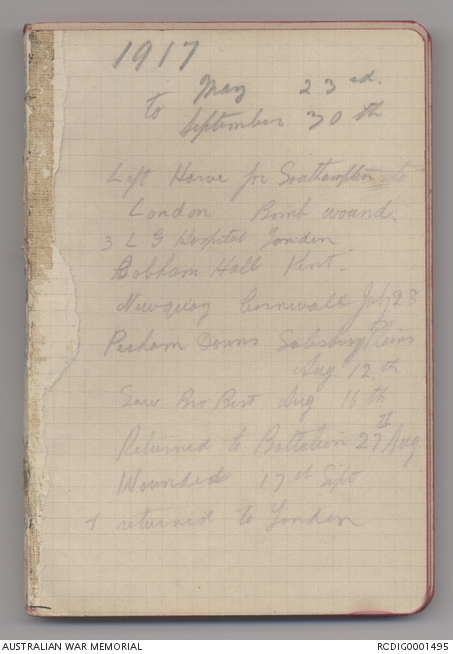 1917
May 23rd.
to
September 30th
Left Harve for Southampton to
London Bomb wound.
3 L G Hospital London
Cobham Hall Kent.
Newquay Cornwall July 23
Perham Downs Salisbury Plains
Aug 12th
Saw Bro Bert Aug 16th
Returned to Battalion 27th Aug
Wounded 17th Sept
& returned to London
AUSTRALIAN WAR MEMORIAL
RCDIG0001495